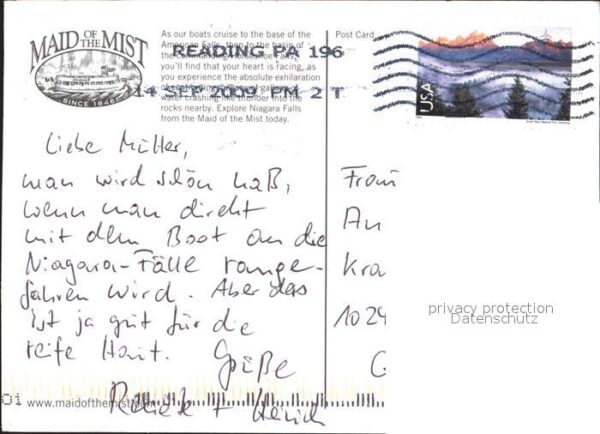 MAID OF THE MIST
SINCE 1846
As our boats cruise to the base of the
American Falls, then to the basin of
the Horseshoe Falls,
you'll find that your heart is racing, as
you experience the absolute exhilaration
of gallons of
water crashing like thunder into the
rocks nearby. Explore Niagara Falls
from the Maid of the Mist today.
READING PA 196
14 SEP 2009 PM 2 T
Post Card
USA
Liebe Mütter,
man wird schön naß,
wenn man direkt
mit dem Boot an die
Niagara-Fälle range-
fahren wird. Aber das
ist ja gut für die
reife Haut. Grüße
+
Frau
An
Kra
1024
privacy protection
Datenschutz
www.maidofthemist.com